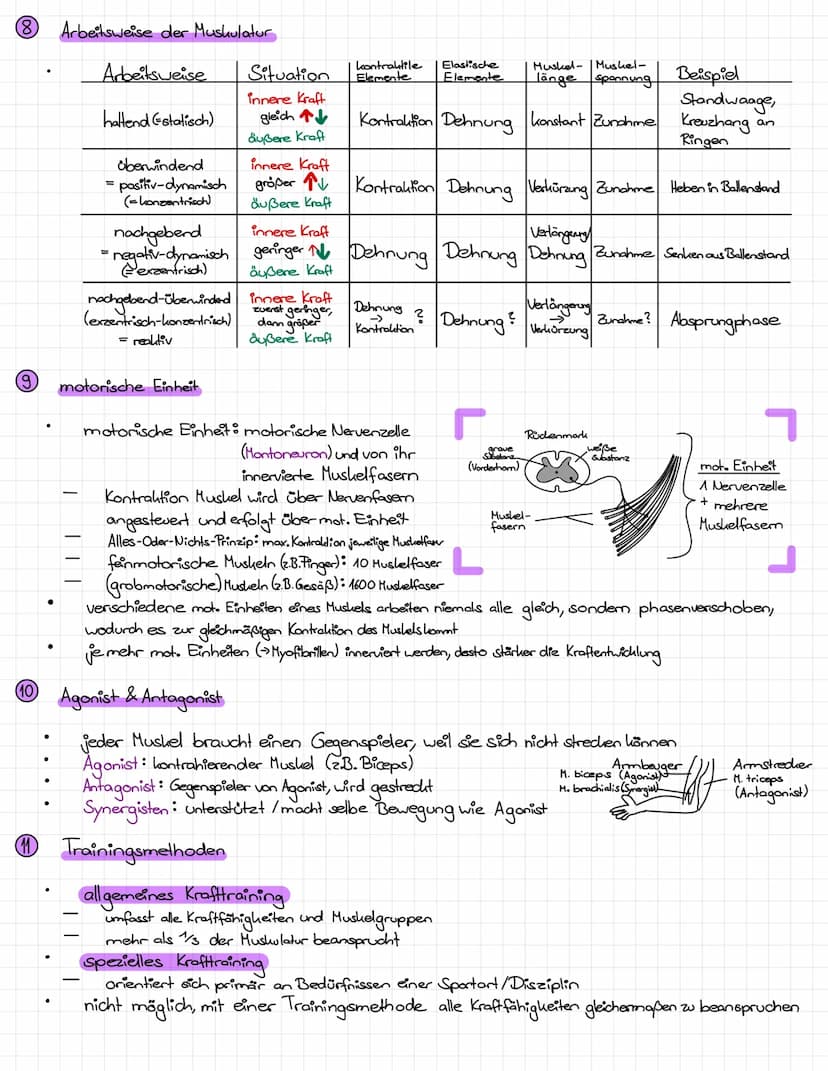 8 Arbeitsweise der Muskulatur
Arbeitsweise Situation kontraktile Elemente Elastische Elemente Muskel-länge Muskel-spannung Beispiel
haltend (=statisch) innere Kraft gleich ↑↓ äußere Kraft Kontraktion Dehnung konstant Zunahme Standwaage, Kreuzhang an Ringen
überwindend = positiv-dynamisch (=konzentrisch) innere Kraft größer ↑↓ äußere Kraft Kontraktion Dehnung Verkürzung Zunahme Heben in Ballenstand
nachgebend = negativ-dynamisch (=exzentrisch) innere Kraft geringer ↑↓ äußere Kraft Dehnung Dehnung Verlängerung/Dehnung Zunahme Senken aus Ballenstand
nachgebend-überwindend (exzentrisch-konzentrisch) = reaktiv innere Kraft zuerst geringer, dann größer äußere Kraft Dehnung → Kontraktion ? Dehnung? Verlängerung → Verkürzung Zunahme? Absprungphase
9 motorische Einheit
• motorische Einheit: motorische Nervenzelle
(Montoneuron) und von ihr
innervierte Muskelfasern
— Kontraktion Muskel wird über Nervenfasern
angesteuert und erfolgt über mot. Einheit
— Alles-Oder-Nichts-Prinzip: max. Kontraktion jeweilige Muskelfaser
— feinmotorische Muskeln (z.B. Finger): 10 Muskelfaser
— (grobmotorische) Muskeln (z.B. Gesäß): 1600 Muskelfaser
Rückenmark
graue Substanz (Vorderhorn)
weiße Substanz
Muskel-
fasern
mot. Einheit
1 Nervenzelle
+ mehrere
Muskelfasern
• verschiedene mot. Einheiten eines Muskels arbeiten niemals alle gleich, sondern phasenverschoben,
wodurch es zur gleichmäßigen Kontraktion des Muskels kommt
• je mehr mot. Einheiten (→Myofibrillen) innerviert werden, desto stärker die Kraftentwicklung
10 Agonist & Antagonist
• jeder Muskel braucht einen Gegenspieler, weil sie sich nicht strecken können
• Agonist: kontrahierender Muskel (z.B. Biceps)
• Antagonist: Gegenspieler von Agonist, wird gestreckt
• Synergisten: unterstützt / macht selbe Bewegung wie Agonist
Armbeuger
M. biceps (Agonist)
M. brachialis (Synergist)
Armstrecker
M. triceps
(Antagonist)
11 Trainingsmethoden
• allgemeines Krafttraining
— umfasst alle Kraftfähigkeiten und Muskelgruppen
— mehr als 1/3 der Muskulatur beansprucht
• spezielles Krafttraining
— orientiert sich primär an Bedürfnissen einer Sportart/Disziplin
• nicht möglich, mit einer Trainingsmethode alle Kraftfähigkeiten gleichermaßen zu beanspruchen